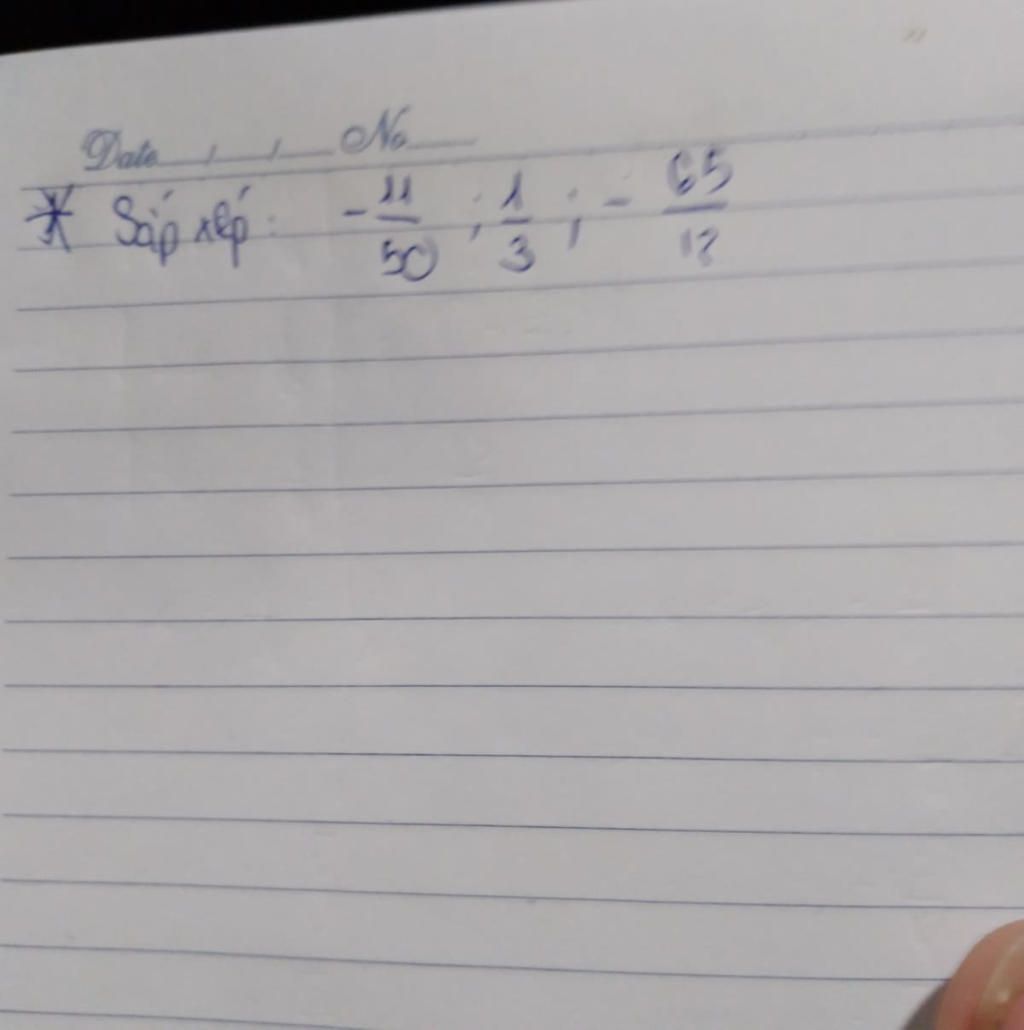 Date / / No
* Sắp xếp: -11/50 ; 1/3 ; - 65/12